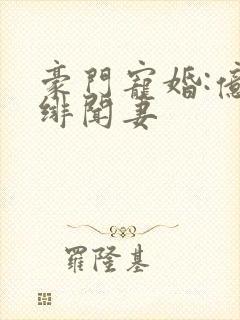 豪門寵婚:億
緋聞妻
羅隆基